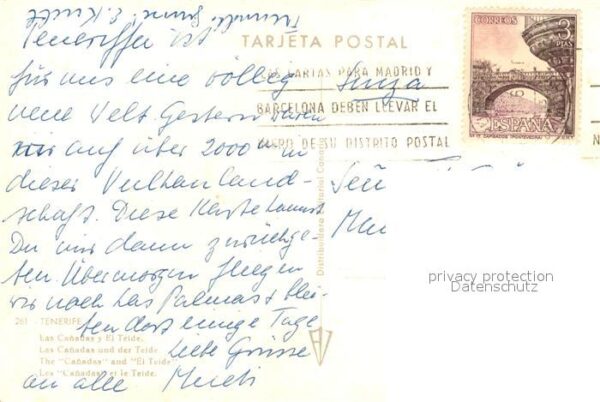 Teneriffa ist
für uns eine völlig
neue Welt. Gestern waren
wir auf über 2000 m in
dieser Vulkanland-
schaft. Diese Karte kannst
Du mir dann zurückge-
ben. Übermorgen fliegen
wir nach Las Palmas & blei-
ben dort einige Tage
Liebe Grüsse
an alle
TARJETA POSTAL
CARTAS PARA MADRID Y
BARCELONA DEBEN LLEVAR EL
DE SU DISTRITO POSTAL
CORREOS
3
PTAS
ESPAÑA
261 - TENERIFE
Las Cañadas y El Teide.
Las Cañadas und der Teide
The "Cañadas" and "El Teide"
Les "Cañadas" et le Teide.
privacy protection
Datenschutz